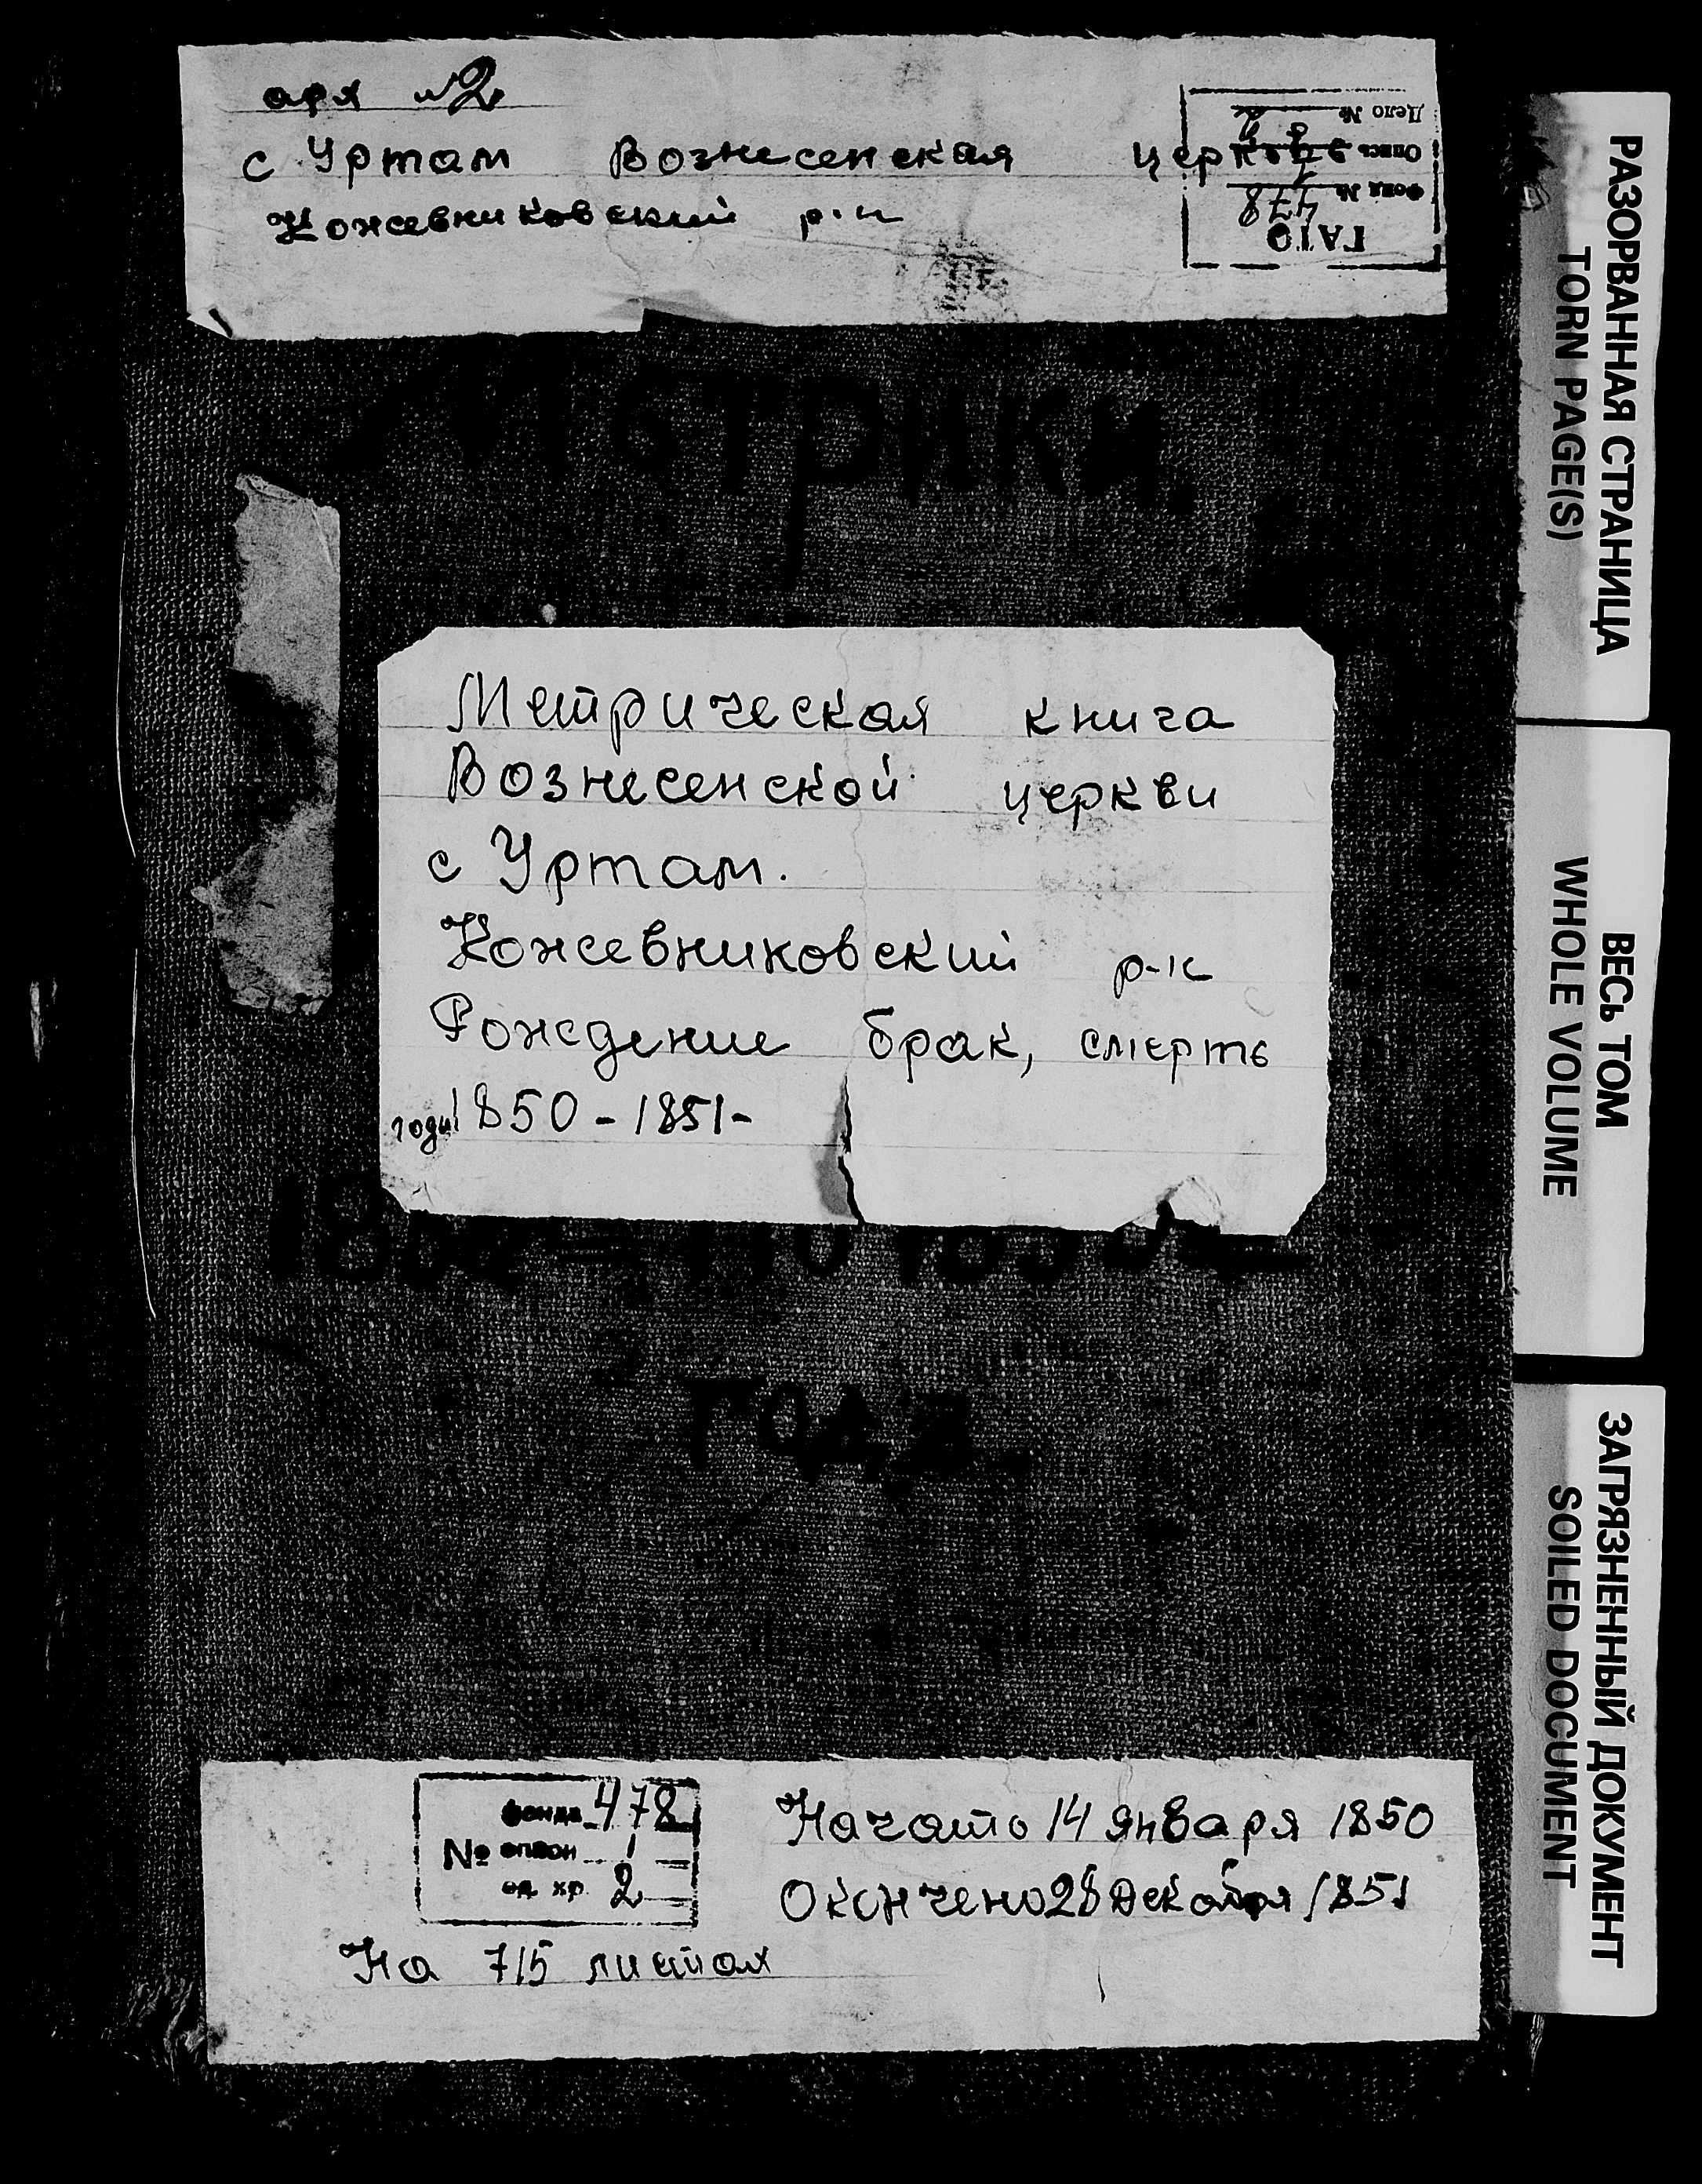 арх №2
с Уртам Вознесенская церковь
Кожевниковский р-н
Дело № 2
Опись № 1
Фонд № 478
ГАТО
Метрики.
Метрическая книга
Вознесенской церкви
с Уртам.
Кожевниковский р-н
Рождение брак, смерть
годы 1850-1851-
года.
фонда 478
№ описи 1
ед. хр. 2
Начато 14 января 1850
Окончено 28 декабря 1851
На 715 листах
РАЗОРВАННАЯ СТРАНИЦА
TORN PAGE(S)
ВЕСЬ ТОМ
WHOLE VOLUME
ЗАГРЯЗНЕННЫЙ ДОКУМЕНТ
SOILED DOCUMENT